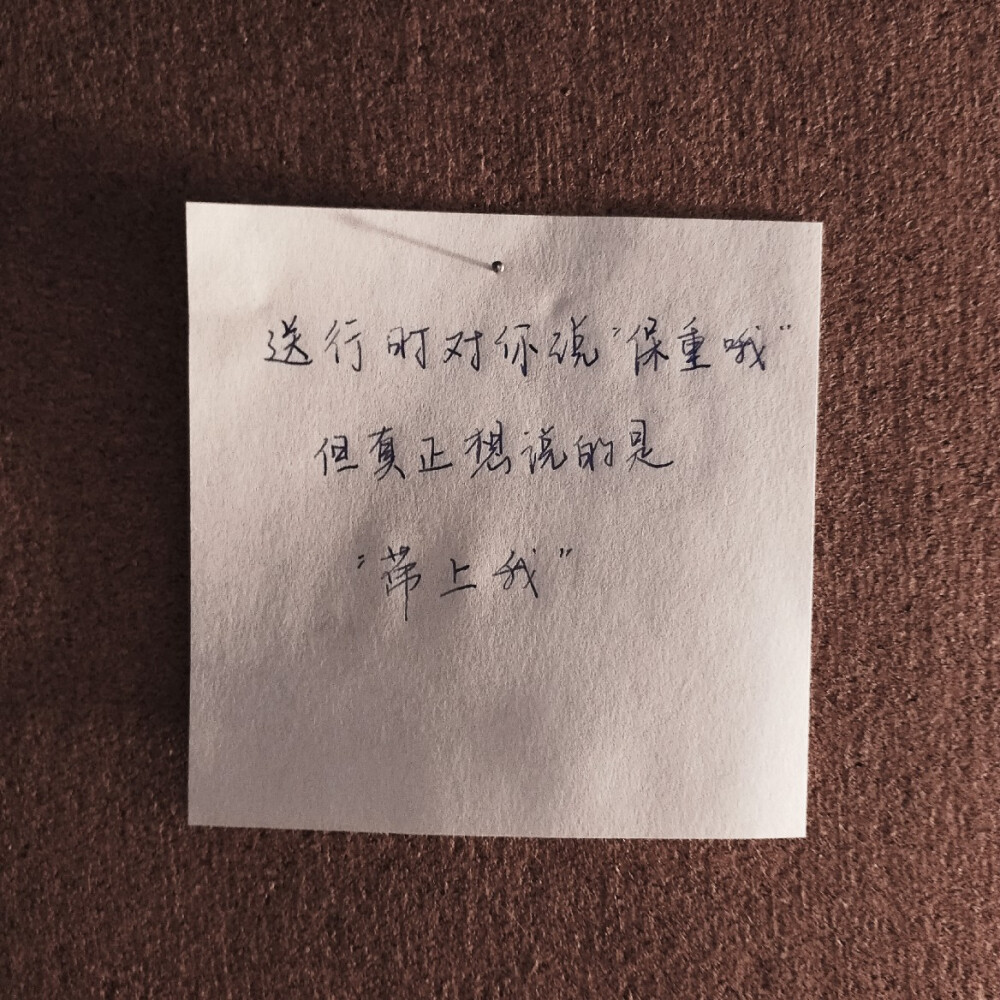 送行时对你说"保重哦"
但真正想说的是
"带上我"